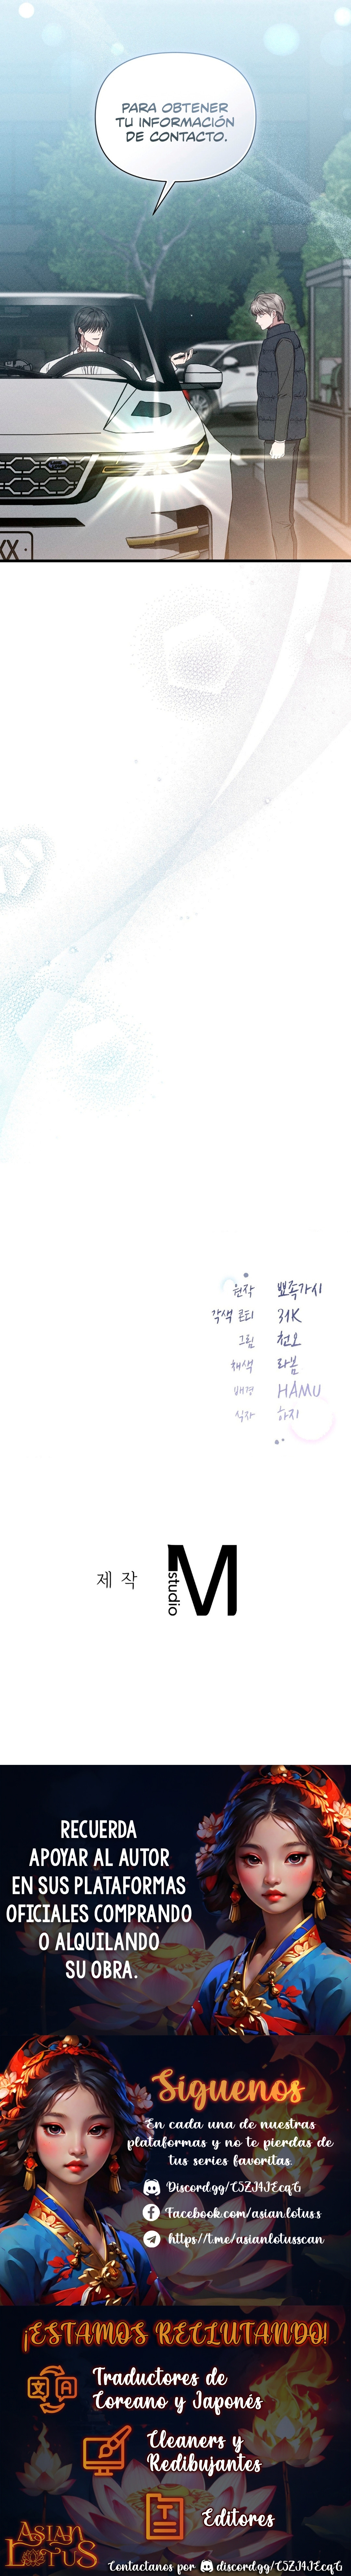 PARA OBTENER
TU INFORMACIÓN
DE CONTACTO.
XX
원작 뾰족가시
각색 콘티 31K
그림 천오
채색 라봄
배경 HAMU
식자 하지
제 작 M studio
RECUERDA
APOYAR AL AUTOR
EN SUS PLATAFORMAS
OFICIALES COMPRANDO
O ALQUILANDO
SU OBRA.
Síguenos
En cada una de nuestras
plataformas y no te pierdas de
tus series favoritas.
Discord.gg/C5ZJ4JEcqG
Facebook.com/asian.lotus.s
https://t.me/asianlotusscan
¡ESTAMOS RECLUTANDO!
Traductores de
Coreano y Japonés
Cleaners y
Redibujantes
Editores
ASIAN
LOTUS
Contactanos por discord.gg/C5ZJ4JEcqG